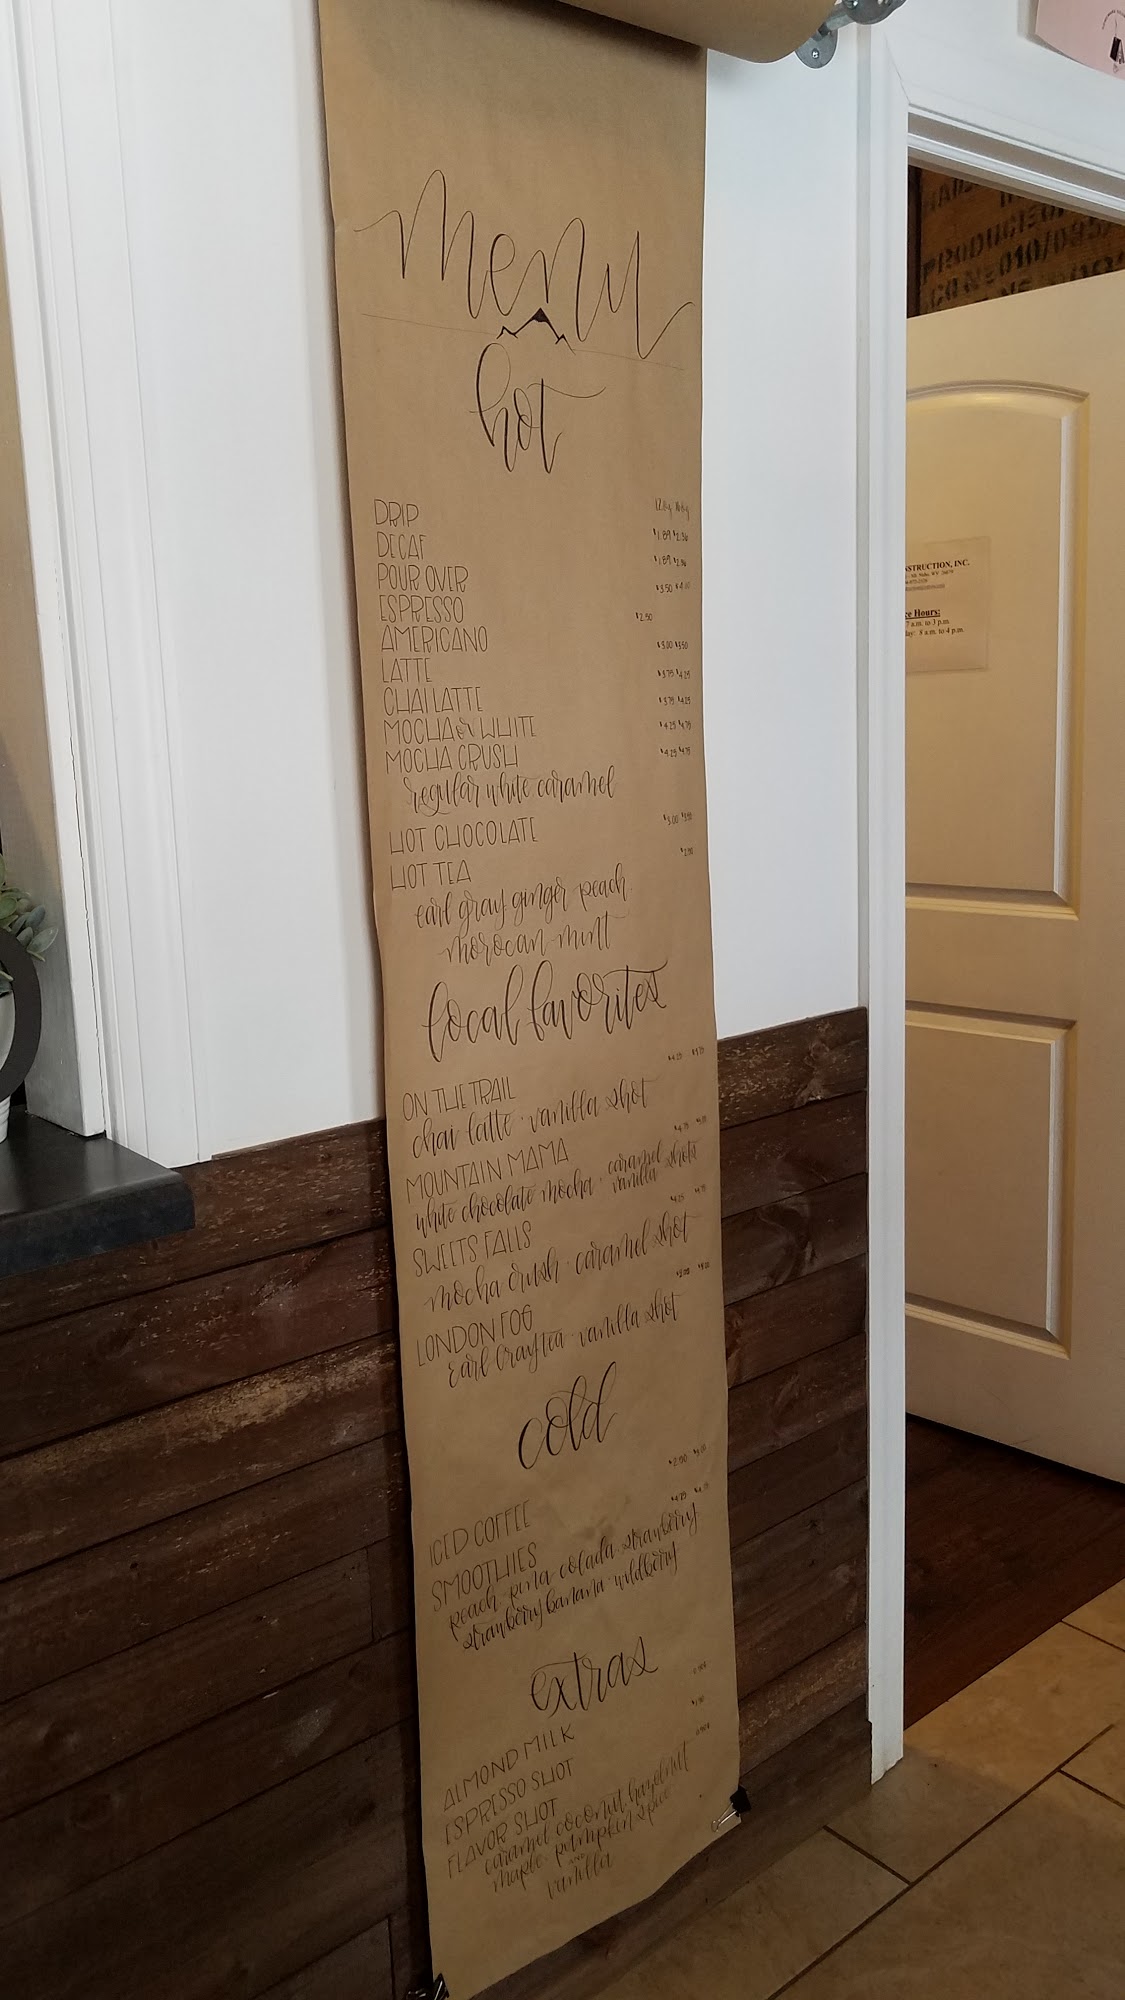 menu
hot
12oz 16oz
DRIP $1.89 $2.36
DECAF $1.89 $2.36
POUR OVER $3.50
ESPRESSO $2.50
AMERICANO $3.00 $3.50
LATTE $3.75 $4.25
CHAI LATTE $3.75 $4.25
MOCHA or WHITE $4.25 $4.75
MOCHA CRUSH $4.25 $4.75
regular white caramel
HOT CHOCOLATE $3.00 $3.50
HOT TEA
earl gray ginger peach
morocan mint
local favorites
ON THE TRAIL
chai latte · vanilla shot
MOUNTAIN MAMA
white chocolate mocha · caramel vanilla shots
SWEETS FALLS
mocha crush · caramel shot
LONDON FOG
Earl Gray tea · vanilla shot
cold
ICED COFFEE
SMOOTHIES
peach · pina colada · strawberry
strawberry banana · wildberry
extras
ALMOND MILK
ESPRESSO SHOT
FLAVOR SHOT
caramel coconut hazelnut
maple · pumpkin spice
vanilla
NSTRUCTION, INC.
ce Hours:
7 a.m. to 3 p.m.
day: 8 a.m. to 4 p.m.